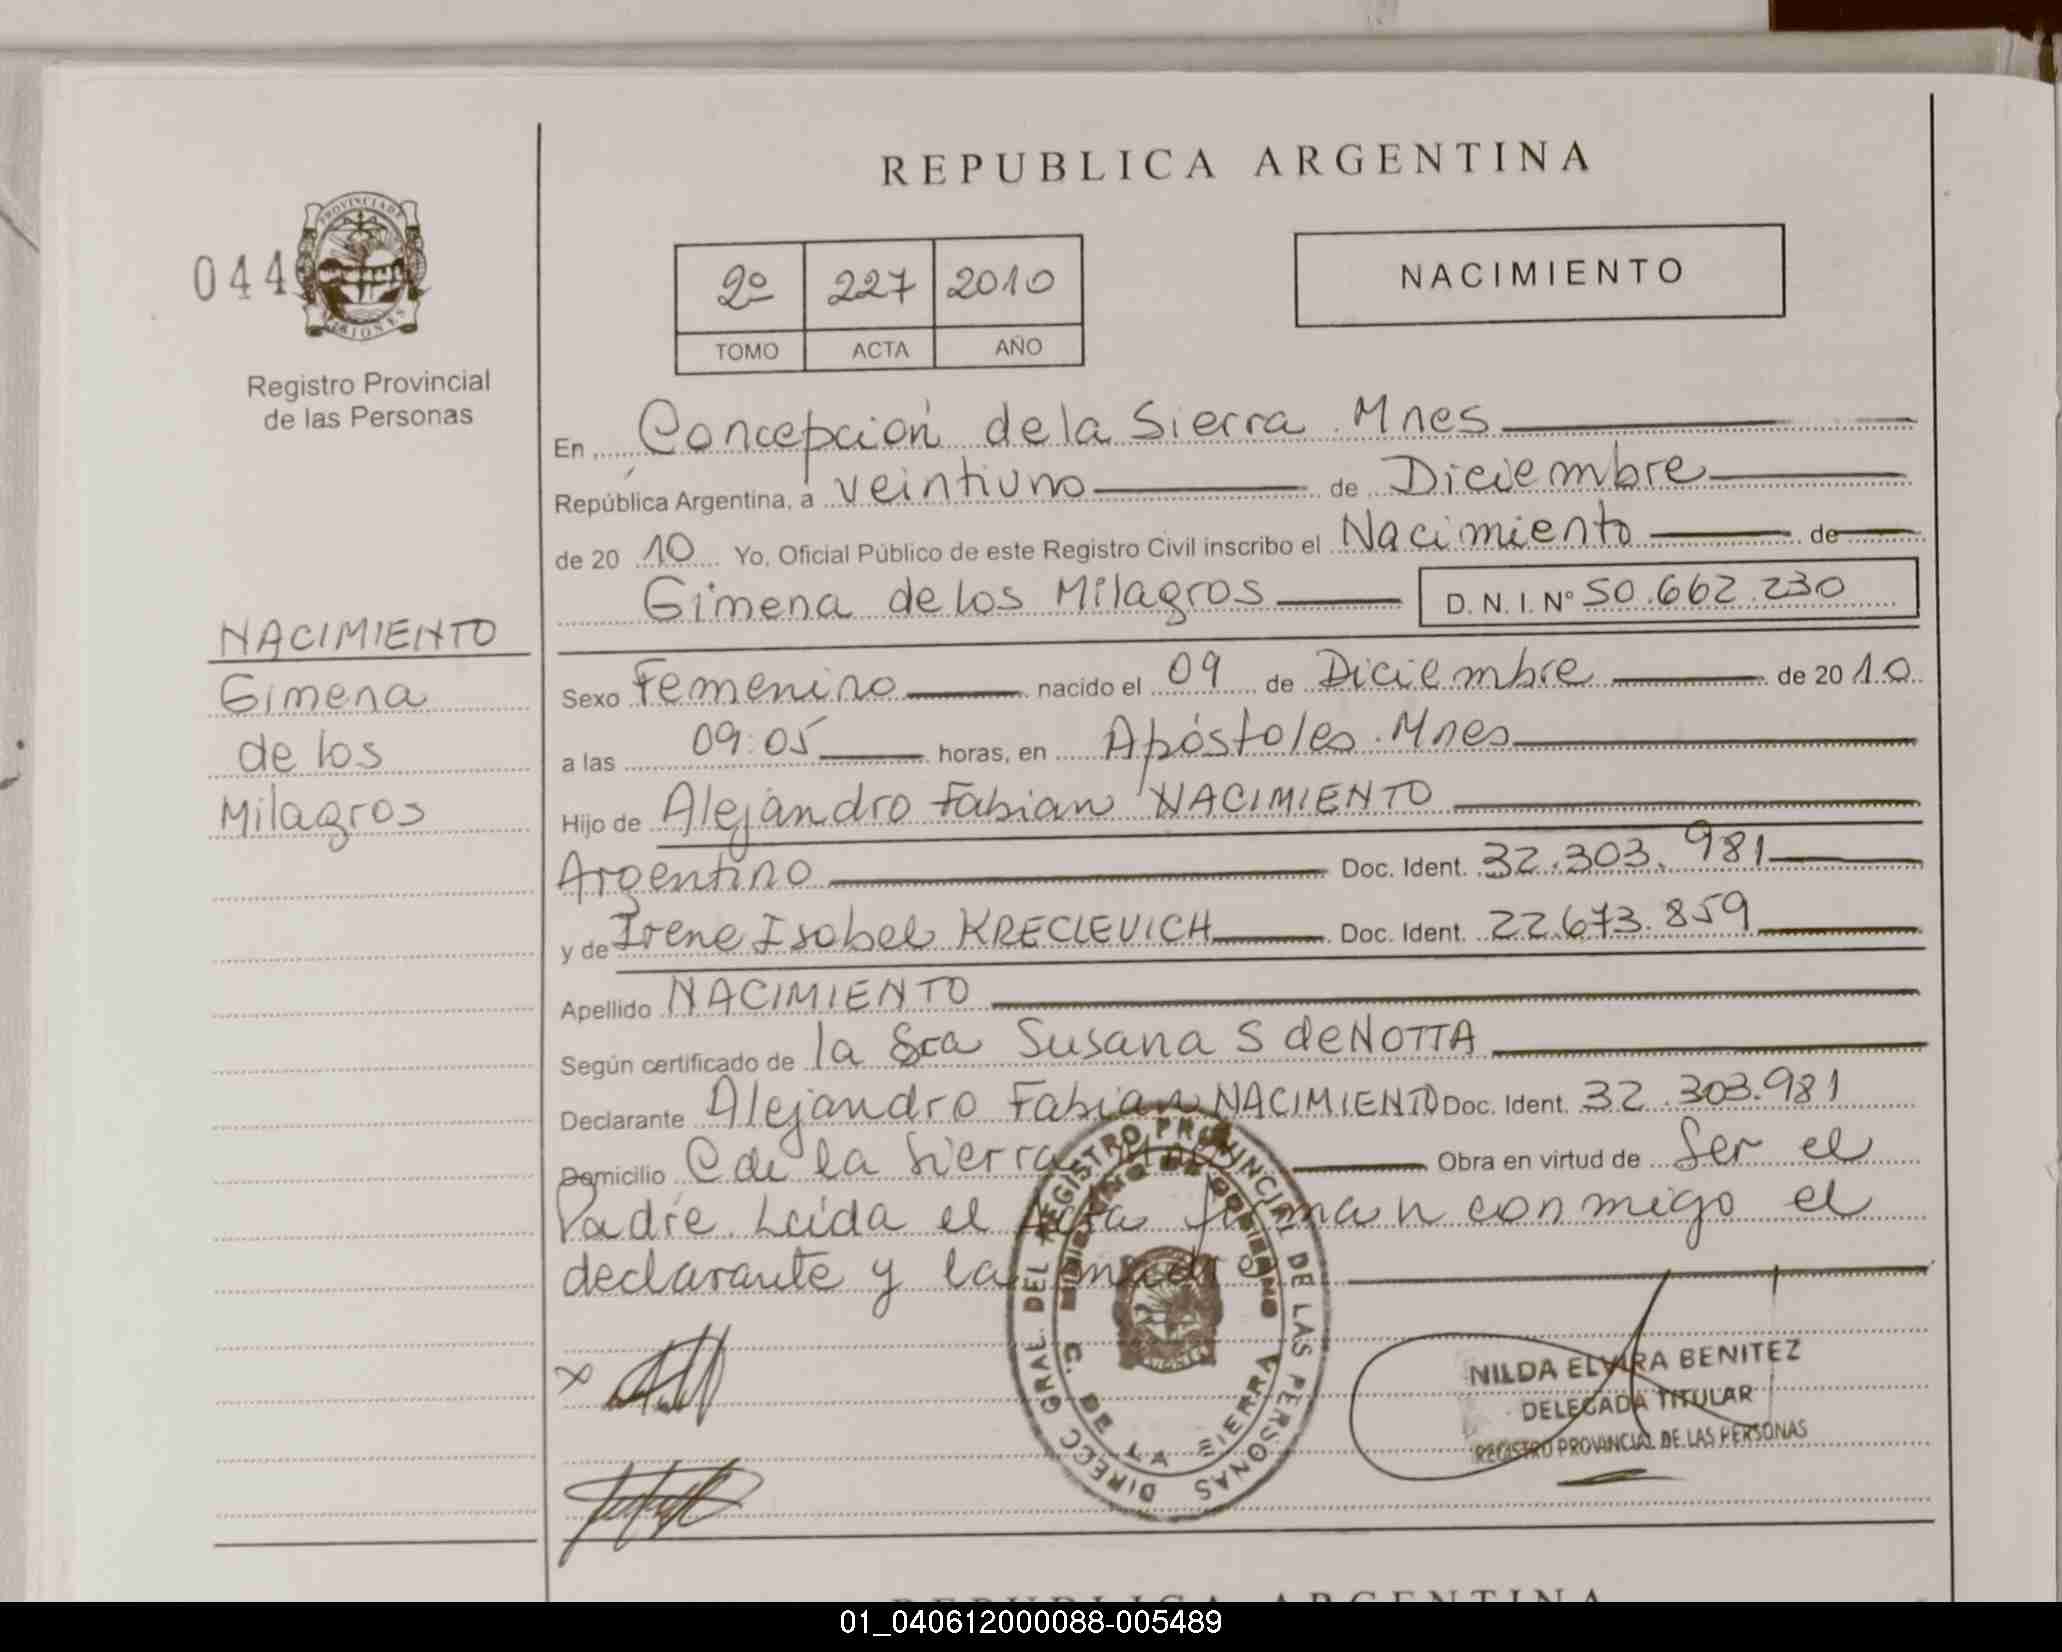 REPUBLICA ARGENTINA
044
PROVINCIA DE
MISIONES
Registro Provincial
de las Personas
2º 227 2010
TOMO ACTA AÑO
NACIMIENTO
En Concepción de la Sierra. Mnes
República Argentina, a veintiuno de Diciembre
de 2010 Yo, Oficial Público de este Registro Civil inscribo el Nacimiento de
Gimena de los Milagros D.N.I. Nº 50.662.230
NACIMIENTO
Gimena
de los
Milagros
Sexo Femenino nacido el 09 de Diciembre de 2010
a las 09:05 horas, en Apóstoles. Mnes
Hijo de Alejandro Fabian NACIMIENTO
Argentino Doc. Ident. 32.303.981
y de Irene Isabel KRECLEVICH Doc. Ident. 22.673.859
Apellido NACIMIENTO
Según certificado de la Sra Susana S de NOTTA
Declarante Alejandro Fabian NACIMIENTO Doc. Ident. 32.303.981
Domicilio C de la Sierra Mnes Obra en virtud de Ser el
Padre. Leída el Acta firman conmigo el
declarante y la madre
DIRECC GRAL DEL REGISTRO PROVINCIAL DE LAS PERSONAS
MINISTERIO DE GOBIERNO
C. DE LA SIERRA
NILDA ELVIRA BENITEZ
DELEGADA TITULAR
REGISTRO PROVINCIAL DE LAS PERSONAS
REPUBLICA ARGENTINA
01_040612000088-005489